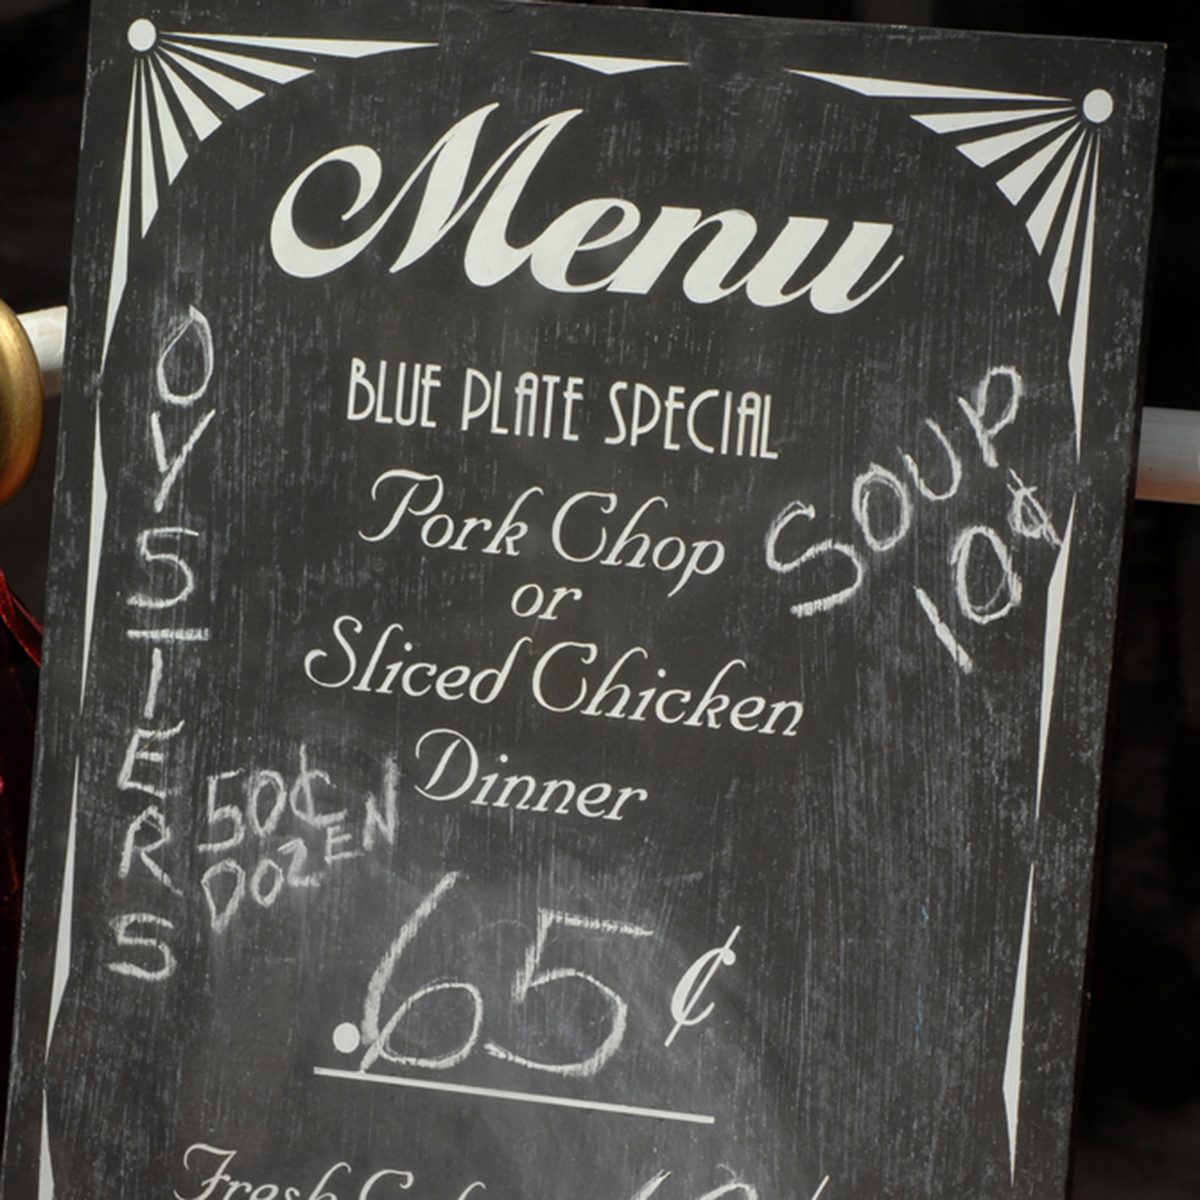 Menu
BLUE PLATE SPECIAL
Pork Chop
or
Sliced Chicken
Dinner
.65¢
OYSTERS
50¢
DOZEN
SOUP
10¢
Fresh